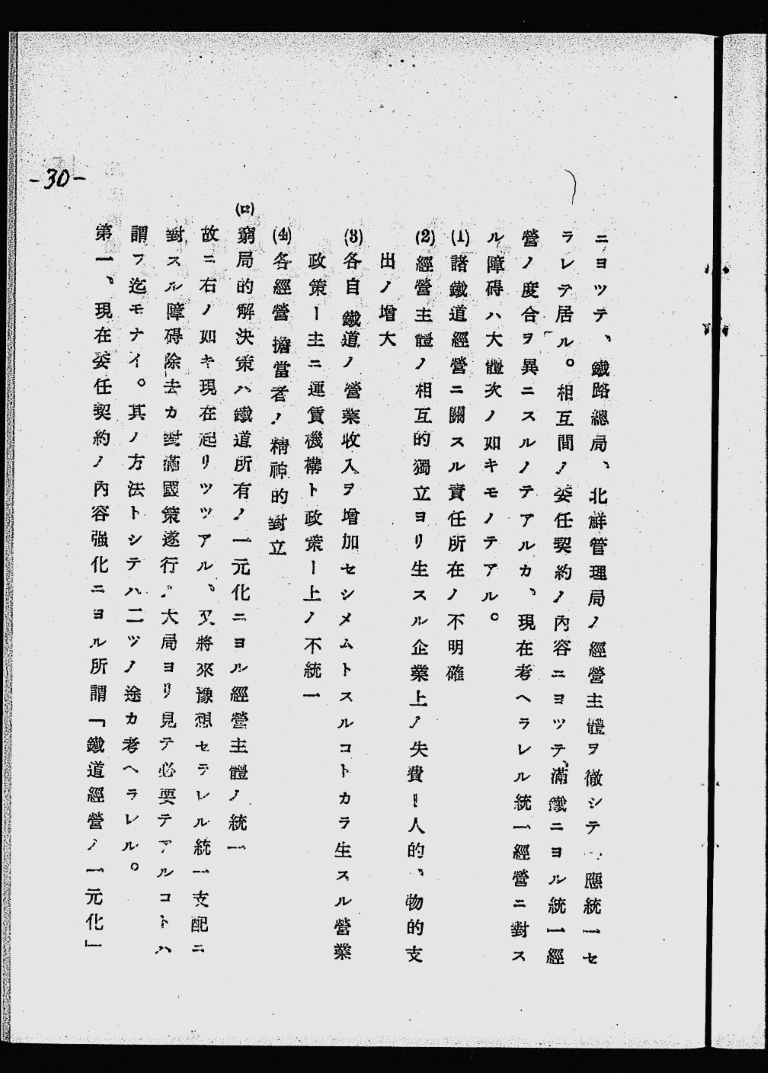 ニヨツテ、鐵路總局、北鮮管理局ノ經營主體ヲ徹シテ一應統一セ
ラレテ居ル。相互間ノ委任契約ノ內容ニヨツテ、滿鐵ニヨル統一經
營ノ度合ヲ異ニスルノテアルカ、現在考ヘラレル統一經營ニ對ス
ル障碍ハ大體次ノ如キモノテアル。
(1) 諸鐵道經營ニ關スル責任所在ノ不明確
(2) 經營主體ノ相互的獨立ヨリ生スル企業上ノ失費ー人的、物的支
出ノ增大
(3) 各自鐵道ノ營業收入ヲ增加セシメムトスルコトカラ生スル營業
政策ー主ニ運賃機構ト政策ー上ノ不統一
(4) 各經營擔當者ノ精神的對立
(ロ) 窮局的解決策ハ鐵道所有ノ一元化ニヨル經營主體ノ統一
故ニ右ノ如キ現在起リツツアル、又將來豫想セラレル統一支配ニ
對スル障碍除去カ對滿國策遂行ノ大局ヨリ見テ必要テアルコトハ
謂フ迄モナイ。其ノ方法トシテハ二ツノ途カ考ヘラレル。
第一、現在委任契約ノ內容强化ニヨル所謂「鐵道經營ノ一元化」
-30-